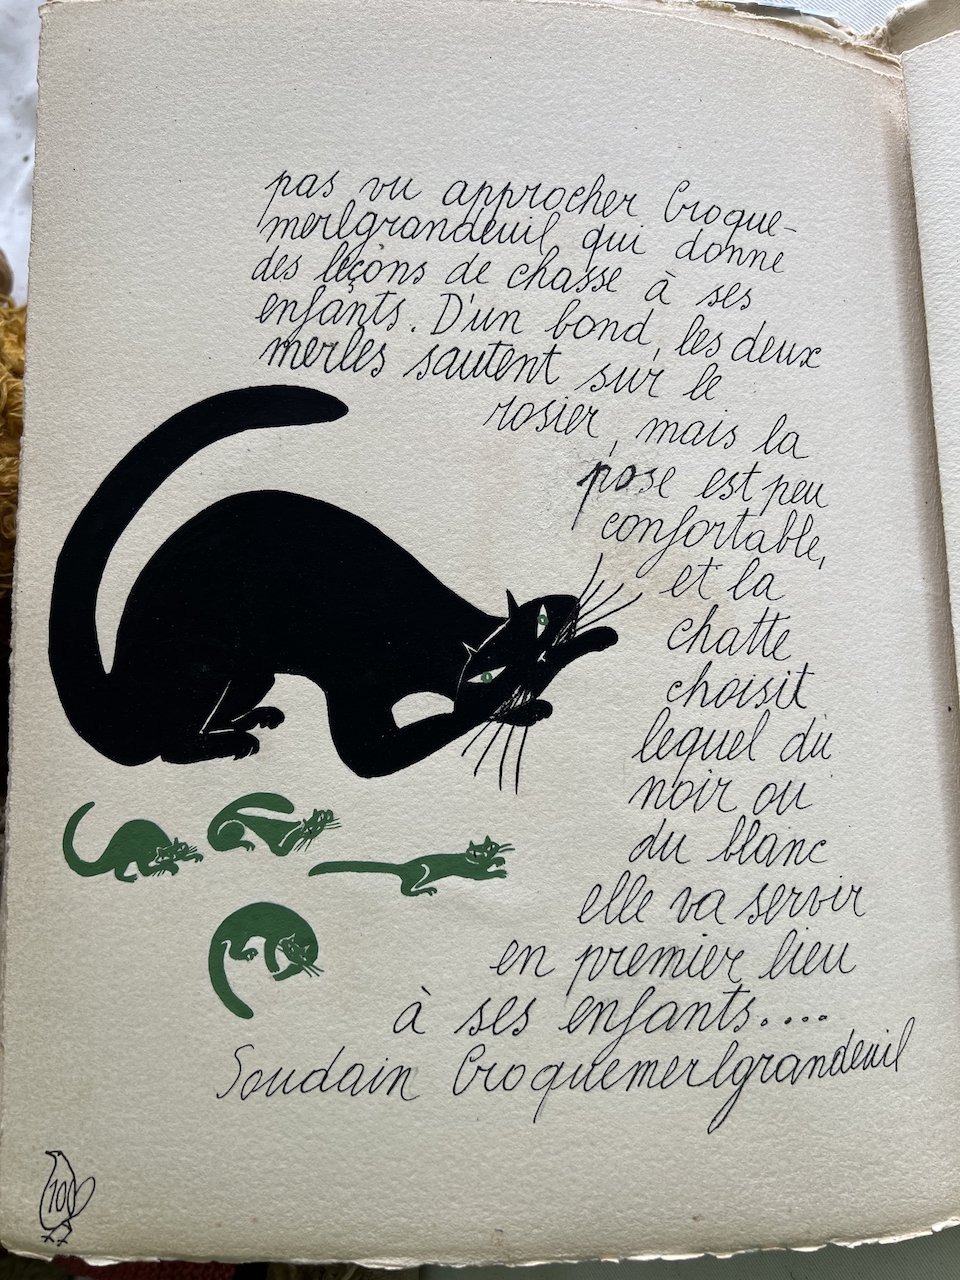 pas vu approcher Croque-
merlgrandeuil qui donne
des leçons de chasse à ses
enfants. D'un bond, les deux
merles sautent sur le
rosier, mais la
pose est peu
confortable,
et la
chatte
choisit
lequel du
noir ou
du blanc
elle va servir
en premier lieu
à ses enfants....
Soudain Croquemerlgrandeuil
100